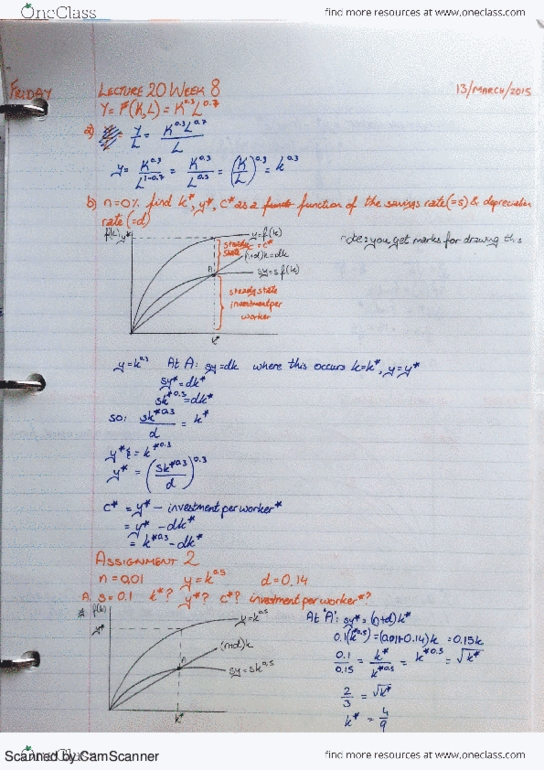 OneClass
find more resources at www.oneclass.com
FRIDAY LECTURE 20 WEEK 8 13/MARCH/2015
Y = F(K,L) = K^0.3 L^0.7
a) Y/L = K^0.3 L^0.7 / L
y = K^0.3 / L^1-0.7 = K^0.3 / L^0.3 = (K/L)^0.3 = k^0.3
b) n=0% find k*, y*, c* as a function of the savings rate (=s) & depreciation
rate (=d)
f(k) y* y=f(k) note: you get marks for drawing this
steady state c = c*
(n+d)k=dk
A sy=sf(k)
steady state
investment per
worker
k*
y=k^0.3 At A: sy=dk where this occurs k=k*, y=y*
sy*=dk*
sk*^0.3=dk*
so: sk*^0.3 / d = k*
y* = k*^0.3
y* = (sk*^0.3 / d)^0.3
c* = y* - investment per worker*
= y* - dk*
= k*^0.3 - dk*
ASSIGNMENT 2
n=0.01 y=k^0.5 d=0.14
A. s=0.1 k*? y*? c*? investment per worker*?
f(k) y=k^0.5
y*
(n+d)k
A
sy=sk^0.5
k*
At "A": sy*=(n+d)k*
0.1(k*^0.5)=(0.01+0.14)k = 0.15k
0.1/0.15 = k*/k*^0.5 = k*^0.5 = √k*
2/3 = √k*
k* = 4/9
Scanned by CamScanner
OneClass
find more resources at www.oneclass.com